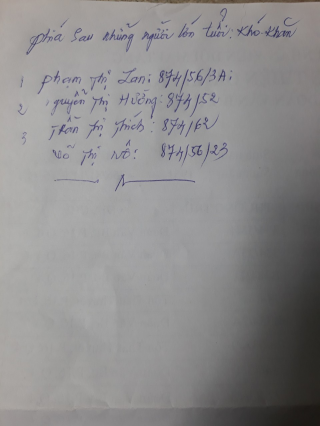 phía sau những người lớn tuổi: khó khăn
1 phạm thị Lan: 874/56/3A:
2 Nguyễn thị Hường: 874/52
3 trần thị thích: 874/62
võ thị nô: 874/56/23